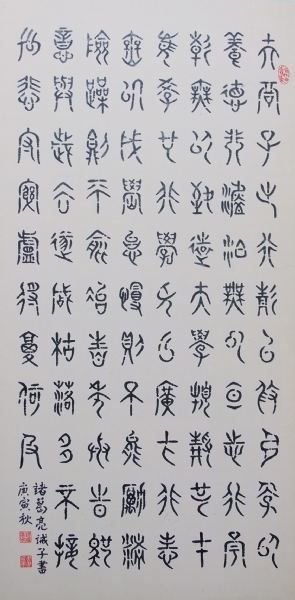 夫君子之行靜以修身儉以
養德非澹泊無以明志非寧
靜無以致遠夫學須靜也才
須學也非學無以廣才非志
無以成學怠慢則不能勵精
險躁則不能治性年與時馳
意與歲去遂成枯落多不接
世悲守窮廬將復何及
諸葛亮誡子書
庚寅秋